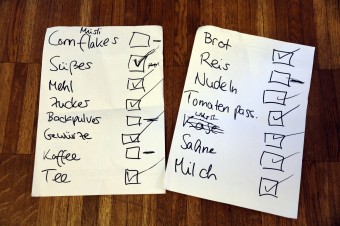 Müsli
Cornflakes
Süßes
Mehl
Zucker
Backpulver
Gewürze
Kaffee
Tee
Brot
Reis
Nudeln
Tomaten pass.
Käse
Sahne
Milch